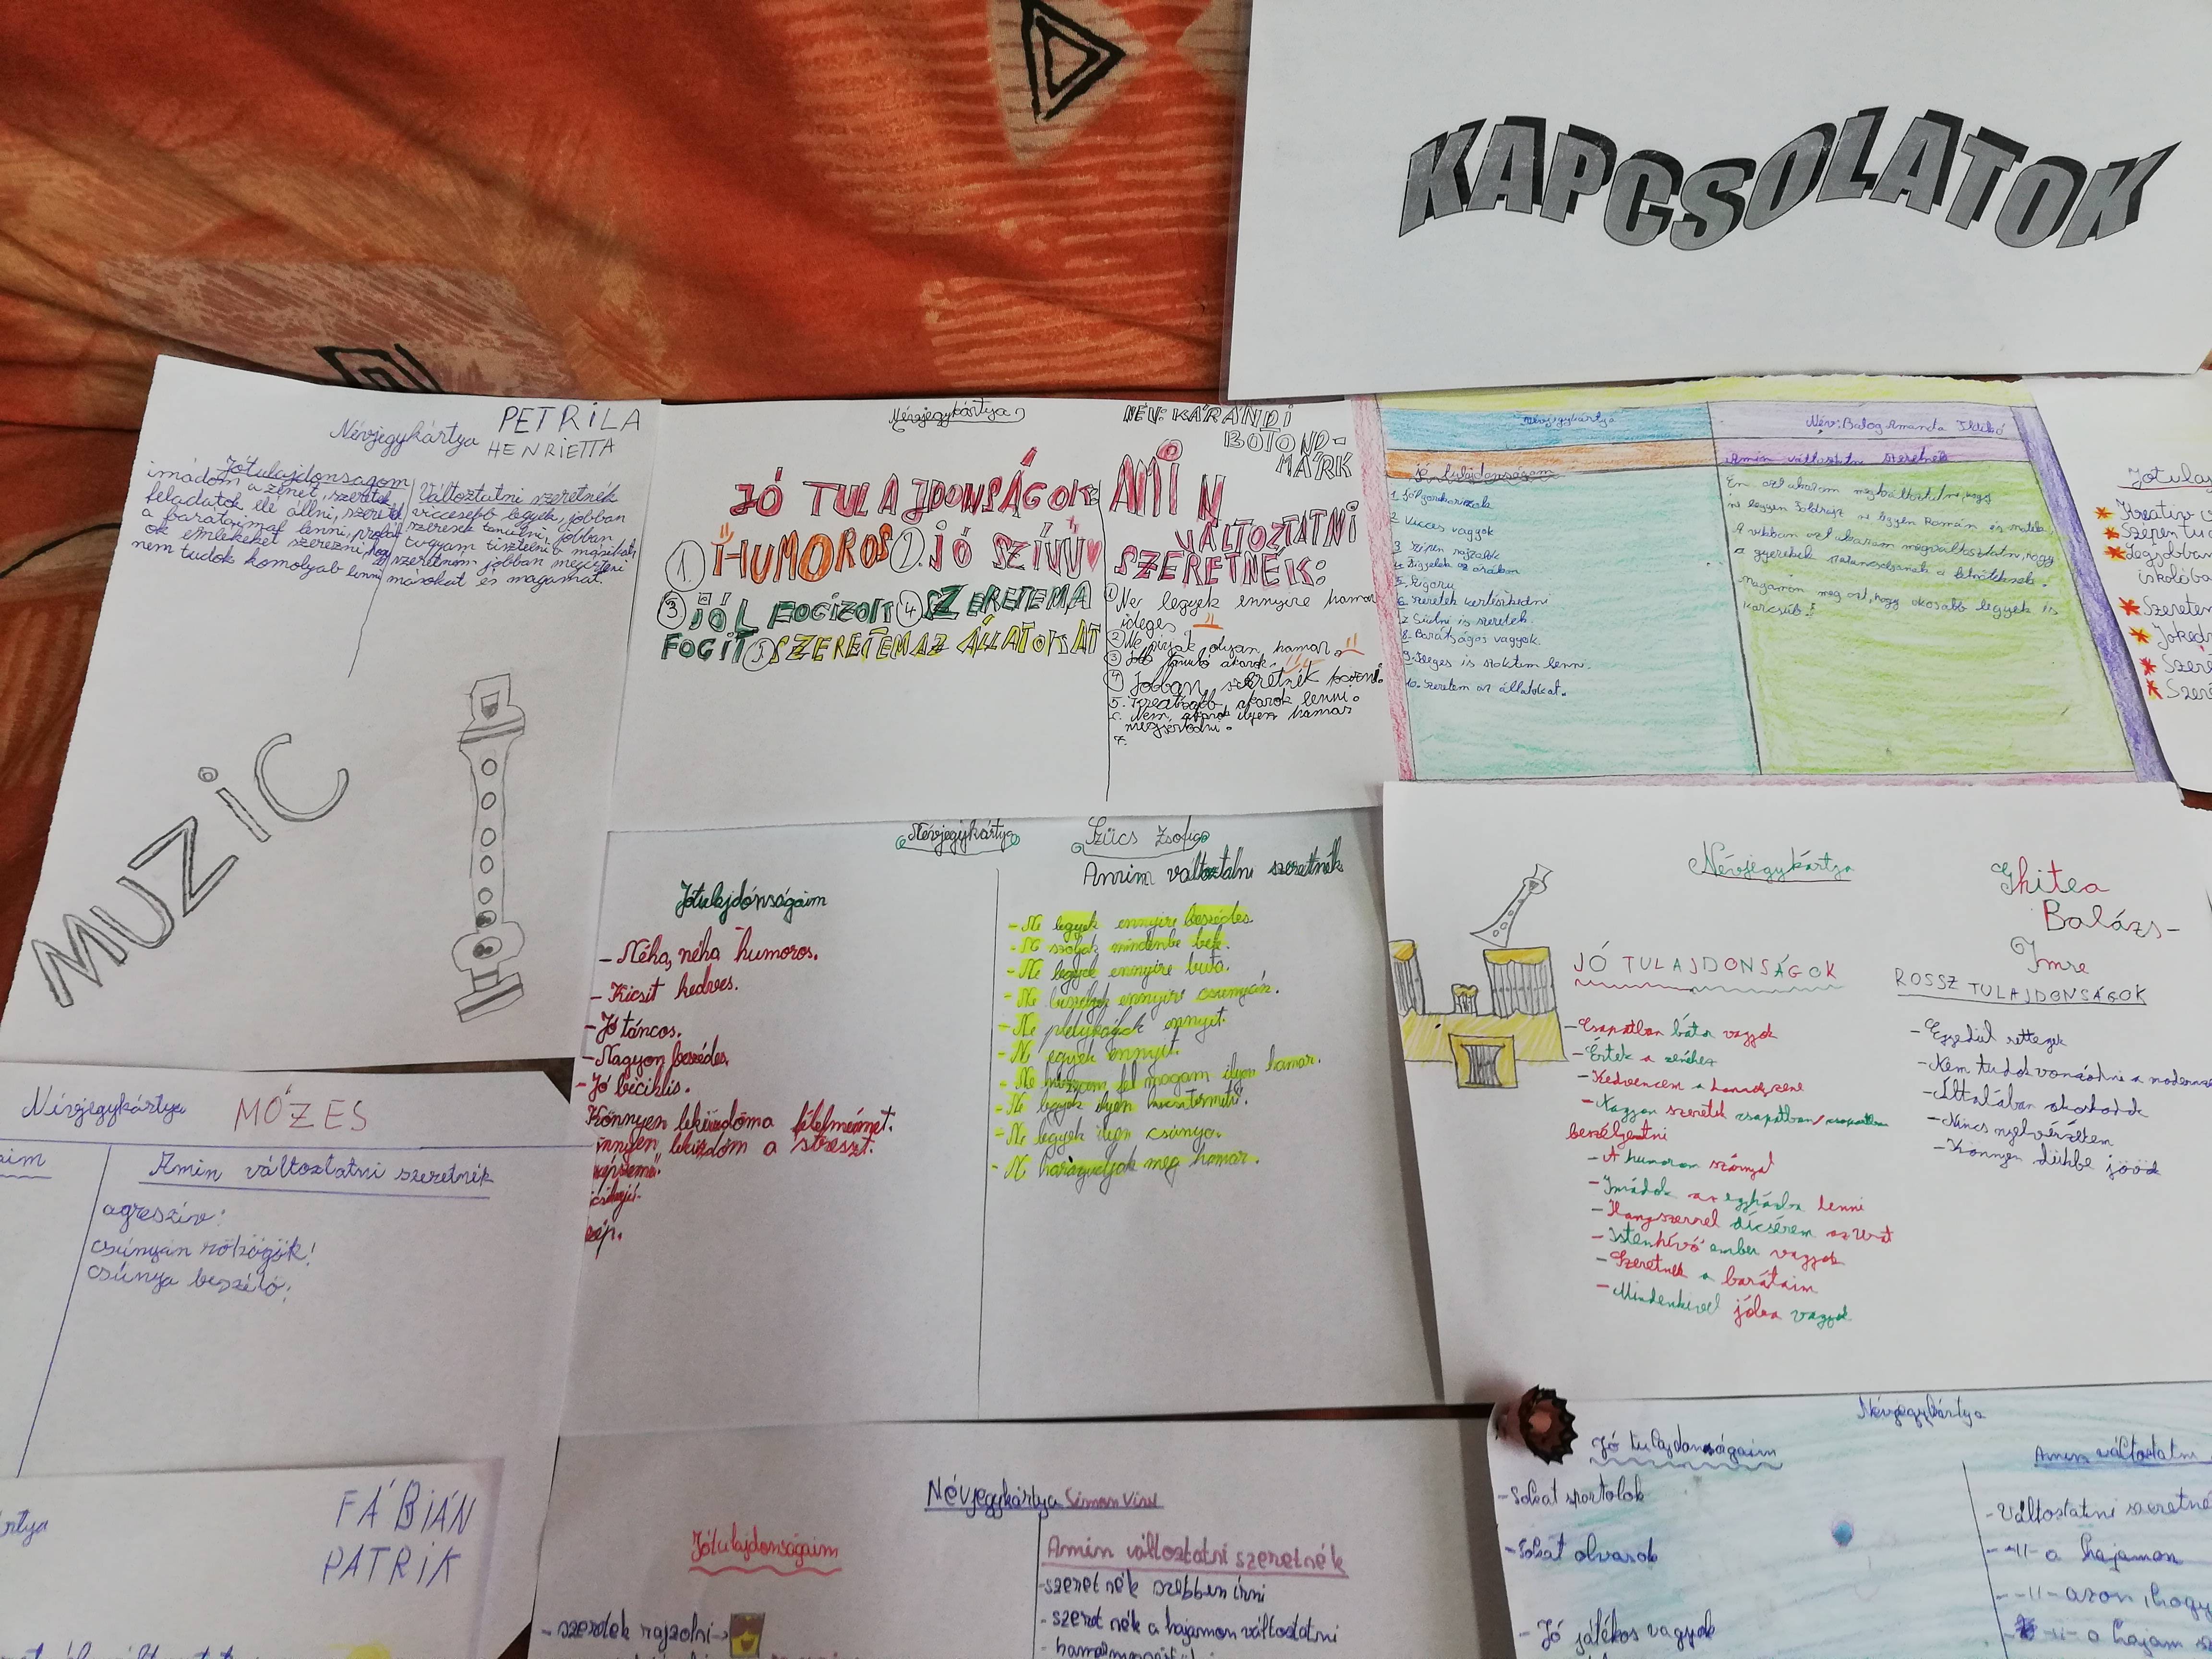 KAPCSOLATOK
Névjegykártya
PETRILA
HENRIETTA
Jótulajdonságom
imádom a zenét, szeretek
feladatok elé állni, szeretek
a barátaimmal lenni, próbálok
emlékeket szerezni, hogy
nem tudok komolyab lenni
Változtatni szeretnék
viccesebb legyek, jobban
szeressek tanulni, jobban
tugyam tisztelni a másikat,
szeretném jobban megérteni
másokat és magamat.
MUZIC
Névjegykártya
NÉV: KÁRÁNDI
BOTOND-
MÁRK
JÓ TULAJDONSÁGOK
1. HUMOROS 2. JÓ SZÍVŰ
3 JÓL FOGIZOK 4 SZERETEM A
FOGIT 5 SZERETEM AZ ÁLLATOKAT
AMIN
VÁLTOZTATNI
SZERETNÉK:
1 Ne legyek ennyire hamar
ideges
2 Ne sírjak olyan hamar.
3 Jobb tanuló akarok
4 Jobban szeretnék
5. akarok lenni.
6. Nem akarok ilyen hamar
megsértődni.
7.
Névjegykártya
Név: Balog Amanda Ildikó
Jó tulajdonságom
2. Vicces vagyok
3. Szépen rajzolok
4. Figyelek az órákon
5. Szigorú
6. Szeretek kertészkedni
7. Sütni is szeretek.
8. Barátságos vagyok.
9. is szoktam lenni.
10. Szeretem az állatokat.
Amin változtatni szeretnék
Én azt akarom megváltoztatni, hogy
ne legyen Földrajz ne legyen Román és matek.
A vikban azt akarom megváltoztatni, hogy
a gyerekek
magamon meg azt, hogy okosabb legyek és
Jótulaj
Kreatív
Szépen tu
Legjobban
iskolába
Szeretem
Jóked
Szere
Szere
Névjegykártya
Szűcs Zsófia
Jótulajdonságaim
- Néha, néha humoros.
- Kicsit kedves.
- Jó táncos.
- Nagyon beszédes.
- Jó biciklis.
Könnyen leküzdöm a félelmeimet.
nnyen leküzdöm a stresszt.
Amim változtatni szeretnék
- Ne legyek ennyire beszédes.
- Ne szóljak mindenbe bele.
- Ne legyek ennyire buta.
- Ne beszéljek ennyire csúnyán.
- Ne pletykáljak ennyit.
- Ne egyek ennyit.
- Ne húzzam fel magam ilyen hamar.
- Ne legyek ilyen
- Ne legyek ilyen csúnya.
- Ne haragudjak meg hamar.
Névjegykártya
Ghitea
Balázs-
Imre
JÓ TULAJDONSÁGOK
- Csapatban bátor vagyok
- Értek a zenéhez
- Kedvencem a
- Nagyon szeretek csapatban/csapatban
beszélgetni
- A humorom szárnyal
- Imádok az egyházba lenni
- Hangszerrel dícsérem az Urat
- Istenhívő ember vagyok
- Szeretnek a barátaim
- Mindenkivel jóba vagyok
ROSSZ TULAJDONSÁGOK
- Egyedül rettegek
- Nem tudok vonzódni a
- Általában okoskodok
- Nincs nyelvérzékem
- Könnyen dühbe jövök
Névjegykártya
MÓZES
aim
Amin változtatni szeretnék
agreszív!
csúnyán röhögök!
csúnya beszélő!
rtya
FÁBIÁN
PATRIK
Névjegykártya Simon
Jótulajdonságaim
- szeretek rajzolni
Amin változtatni szeretnék
- szeretnék szebben írni
- szeretnék a hajamon változtatni
Névjegykártya
Jó tulajdonságaim
- Sokat sportolok
- Sokat olvasok
- Jó játékos vagyok
Amin változtatni
- Változtatni szeretné
- -11- a hajamon
- -11- azon, hogy
- -11- a hajam